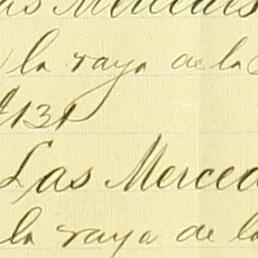 as Mercedes
la raya de la
131
Las Merced
la raya de la